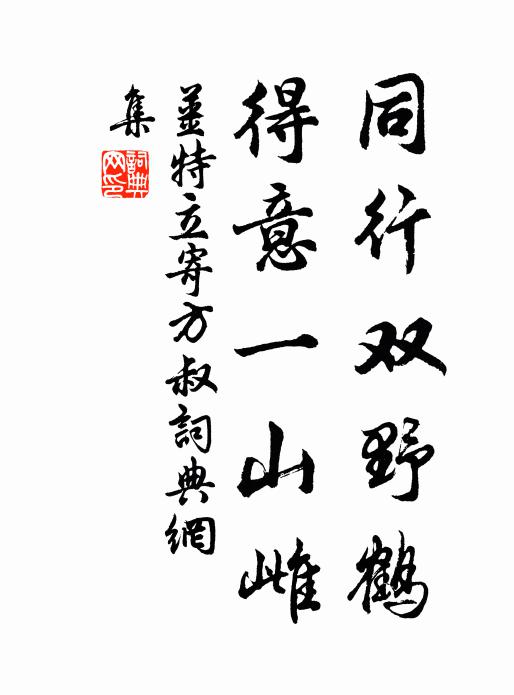 同行双野鹤
得意一山雌
姜特立寄方叔詞典網
集
詞典
网印